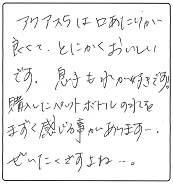 アクアス5は口あたりが
良くて、とにかくおいしい
です。息子も水が好きです。
購入したペットボトルの水を
まずく感じる事があります…。
ぜいたくですよね…。